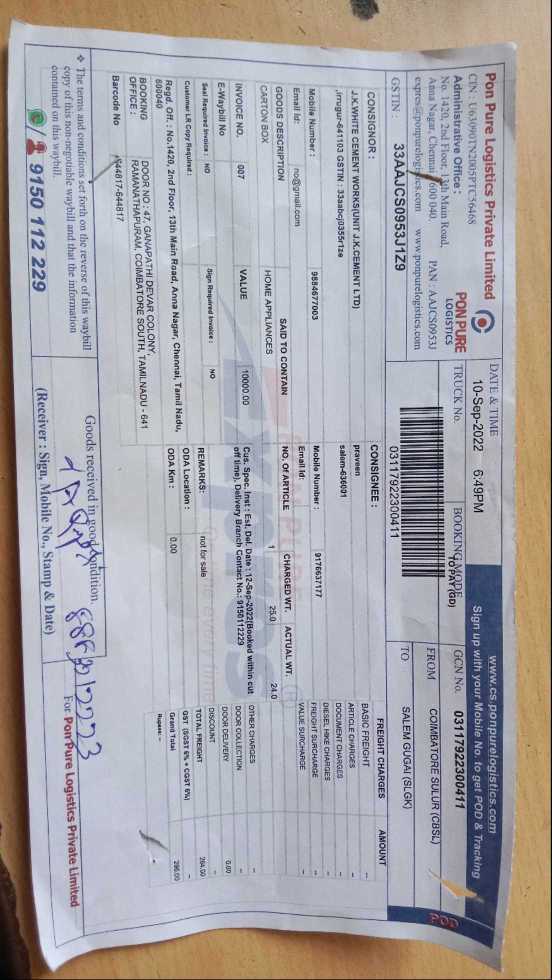 Pon Pure Logistics Private Limited
CIN : U63090TN2005PTC56468
Administrative Office :
No. 1420, 2nd Floor, 13th Main Road,
Anna Nagar, Chennai 600 040. PAN : AAJCS0953J
expres@ponpurelogistics.com www.ponpurelogistics.com
GSTIN : 33AAJCS0953J1Z9
PON PURE
LOGISTICS
www.cs.ponpurelogistics.com
Sign up with your Mobile No. to get POD & Tracking
POD
DATE & TIME
10-Sep-2022 6:49PM
TRUCK No.
BOOKING MODE
TO PAY(GD)
GCN No. 03117922300411
03117922300411
FROM COIMBATORE SULUR (CBSL)
TO SALEM GUGAI (SLGK)
CONSIGNOR :
J.K.WHITE CEMENT WORKS(UNIT J.K.CEMENT LTD)
,irrugur-641103 GSTIN :
Mobile Number : 9884677003
Email Id: no@gmail.com
CONSIGNEE :
praveen
salem-636001
Mobile Number : 9176637177
Email Id:
GOODS DESCRIPTION SAID TO CONTAIN NO. OF ARTICLE CHARGED WT. ACTUAL WT.
CARTON BOX HOME APPLIANCES 1 25.0 24.0
INVOICE NO. 007 VALUE 10000.00
Cus. Spec. Inst : Est. Del. Date : 12-Sep-2022(Booked within cut
off time), Delivery Branch Contact No.: 9150112229
E-Waybill No
Seal Required Invoice : NO Sign Required Invoice : NO
REMARKS: not for sale
Customer LR Copy Required :
ODA Location :
ODA Km : 0.00
Regd. Off. : No.1420, 2nd Floor, 13th Main Road, Anna Nagar, Chennai, Tamil Nadu,
600040
BOOKING OFFICE : DOOR NO : 47, GANAPATHI DEVAR COLONY,
RAMANATHAPURAM, COIMBATORE SOUTH, TAMILNADU - 641
Barcode No 644817-644817
FREIGHT CHARGES AMOUNT
BASIC FREIGHT --
ARTICLE CHARGES --
DOCUMENT CHARGES --
DIESEL HIKE CHARGES --
FREIGHT SURCHARGE --
VALUE SURCHARGE --
OTHER CHARGES --
DOOR COLLECTION --
DOOR DELIVERY 0.00
DISCOUNT
TOTAL FREIGHT 264.00
GST (SGST 6% + CGST 6%) --
Grand Total 296.00
Rupees: --
❖ The terms and conditions set forth on the reverse of this waybill
copy of this non-negotiable waybill and that the information
contained on this waybill.
9150 112 229
Goods received in good condition.
(Receiver : Sign, Mobile No., Stamp & Date)
For Pon Pure Logistics Private Limited